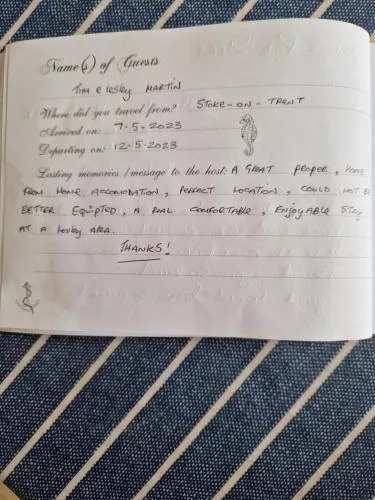 Name(s) of Guests
Tim & Lesley Martin
Where did you travel from? Stoke-on-Trent
Arrived on: 7.5.2023
Departing on: 12.5.2023
Lasting memories / message to the host: A great proper, home
from home accomodation, perfect location, could not be
better equipted, a real comfortable, enjoyable stay
at a lovley area.
Thanks!